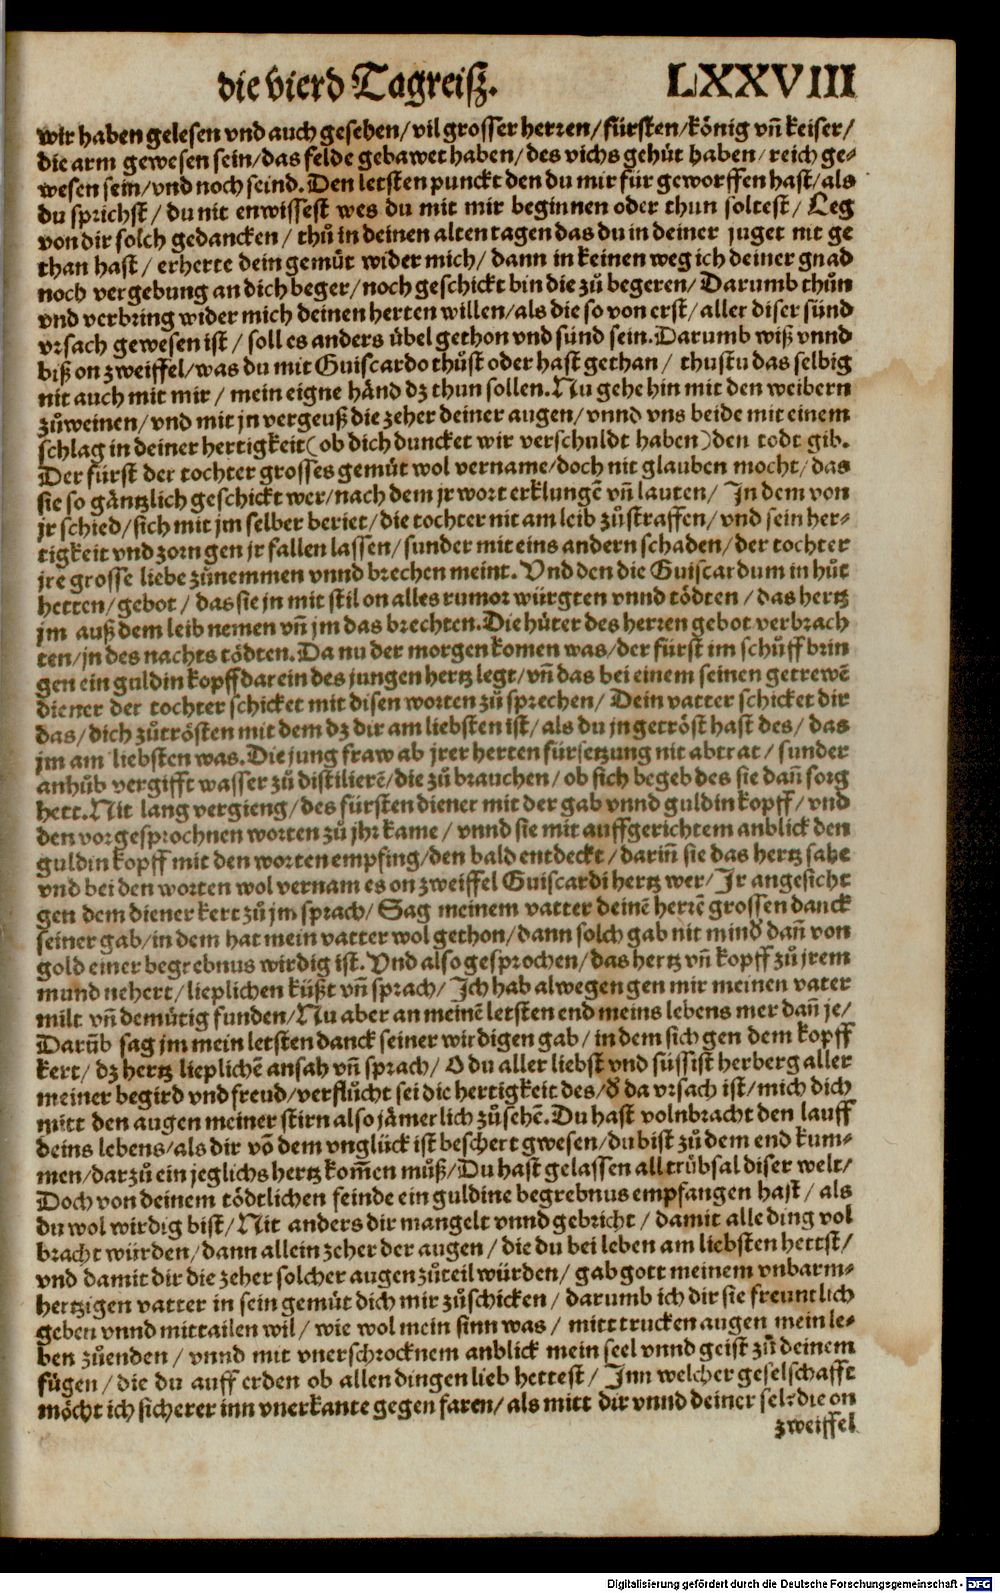 die vierd Tagreisz. LXXVIII
wir haben gelesen vnd auch gesehen/ vil grosser herren/ fürsten/ könig vñ keiser/
die arm gewesen sein/ das felde gebawet haben/ des vichs gehüt haben/ reich ge-
wesen sein/ vnd noch seind. Den letsten punckt den du mir für geworffen hast/ als
du sprichst/ du nit enwissest wes du mit mir beginnen oder thun soltest/ Leg
von dir solch gedancken/ thů in deinen alten tagen das du in deiner juget nit ge
than hast/ erherte dein gemüt wider mich/ dann in keinen weg ich deiner gnad
noch vergebung an dich beger/ noch geschickt bin die zů begeren/ Darumb thůn
vnd verbring wider mich deinen herten willen/ als die so von erst/ aller diser sünd
vrsach gewesen ist/ soll es anders übel gethon vnd sünd sein. Darumb wiß vnnd
biß on zweiffel/ was du mit Guiscardo thůst oder hast gethan/ thustu das selbig
nit auch mit mir/ mein eigne händ dz thun sollen. Nu gehe hin mit den weibern
zůweinen/ vnd mit jn vergeuß die zeher deiner augen/ vnnd vns beide mit einem
schlag in deiner hertigkeit (ob dich duncket wir verschuldt haben) den todt gib.
Der fürst der tochter grosses gemüt wol vername/ doch nit glauben mocht/ das
sie so gäntzlich geschickt wer/ nach dem jr wort erklungē vñ lauten/ In dem von
jr schied/ sich mit jm selber beriet/ die tochter nit am leib zůstraffen/ vnd sein her-
tigkeit vnd zorn gen jr fallen lassen/ sunder mit eins andern schaden/ der tochter
jre grosse liebe zůnemmen vnnd brechen meint. Vnd den die Guiscardum in hůt
hetten/ gebot/ das sie jn mit stil on alles rumor würgten vnnd tödten/ das hertz
jm auß dem leib nemen vñ jm das brechten. Die hüter des herren gebot verbrach
ten/ jn des nachts tödten. Da nu der morgen komen was/ der fürst im schůff brin
gen ein guldin kopff darein des jungen hertz legt/ vñ das bei einem seinen getrewē
diener der tochter schicket mit disen worten zů sprechen/ Dein vatter schicket dir
das/ dich zůtrösten mit dem dz dir am liebsten ist/ als du jn getröst hast des/ das
jm am liebsten was. Die jung fraw ab jrer herten fürsetzung nit abtrat/ sunder
anhůb vergifft wasser zů distilierē/ die zů brauchen/ ob sich begeb des sie dañ sorg
hett. Nit lang vergieng/ des fürsten diener mit der gab vnnd guldin kopff/ vnd
den vorgesprochnen worten zů jhr kame/ vnnd sie mit auffgerichtem anblick den
guldin kopff mit den worten empfing/ den bald entdeckt/ dariñ sie das hertz sahe
vnd bei den worten wol vernam es on zweiffel Guiscardi hertz wer/ Ir angesicht
gen dem diener kert zů jm sprach/ Sag meinem vatter deinē herrē grossen danck
seiner gab/ in dem hat mein vatter wol gethon/ dann solch gab nit minď dañ von
gold einer begrebnus wirdig ist. Vnd also gesprochen/ das hertz vñ kopff zů jrem
mund nehert/ lieplichen küßt vñ sprach/ Ich hab alwegen gen mir meinen vater
milt vñ demütig funden/ Nu aber an meinē letsten end meins lebens mer dañ je/
Darūb sag jm mein letsten danck seiner wirdigen gab/ in dem sich gen dem kopff
kert/ dz hertz lieplichē ansah vñ sprach/ O du aller liebst vnd süssist herberg aller
meiner begird vnd freud/ verflůcht sei die hertigkeit des/ ď da vrsach ist/ mich dich
mitt den augen meiner stirn also jämerlich zůsehē. Du hast volnbracht den lauff
deins lebens/ als dir vō dem vnglück ist beschert gwesen/ du bist zů dem end kum-
men/ darzů ein jeglichs hertz kom̄en můß/ Du hast gelassen all trübsal diser welt/
Doch von deinem tödtlichen feinde ein guldine begrebnus empfangen hast/ als
du wol wirdig bist/ Nit anders dir mangelt vnnd gebricht/ damit alle ding vol
bracht würden/ dann allein zeher der augen/ die du bei leben am liebsten hettst/
vnd damit dir die zeher solcher augen zůteil würden/ gab gott meinem vnbarm-
hertzigen vatter in sein gemüt dich mir zůschicken/ darumb ich dir sie freuntlich
geben vnnd mittailen wil/ wie wol mein sinn was/ mitt trucken augen mein le-
ben zůenden/ vnnd mit vnerschrocknem anblick mein seel vnnd geist zů deinem
fügen/ die du auff erden ob allen dingen lieb hettest/ Inn welcher geselschafft
möcht ich sicherer inn vnerkante gegen faren/ als mitt dir vnnd deiner sel: die on
zweiffel
Digitalisierung gefördert durch die Deutsche Forschungsgemeinschaft - DFG